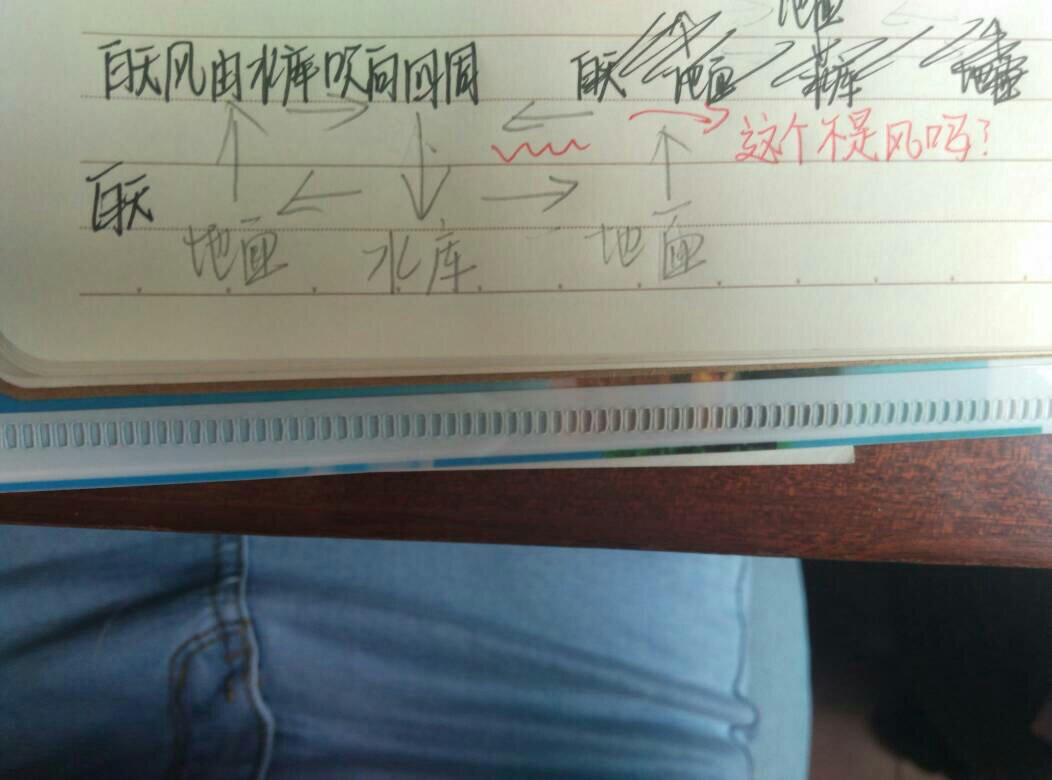 地面
白天风由水库吹向四周 白天 地面 水库 地面
这个不是风吗?
白天
地面 水库 地面